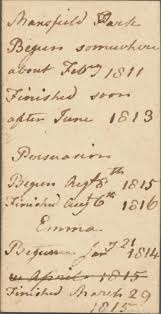 Mansfield Park
Begun somewhere
about Feby 1811
Finished soon
after June 1813
Persuasion
Begun Augt 8th 1815
Finished Augt 6th 1816
Emma
Begun Jany 21 1814
Finished March 29
1815